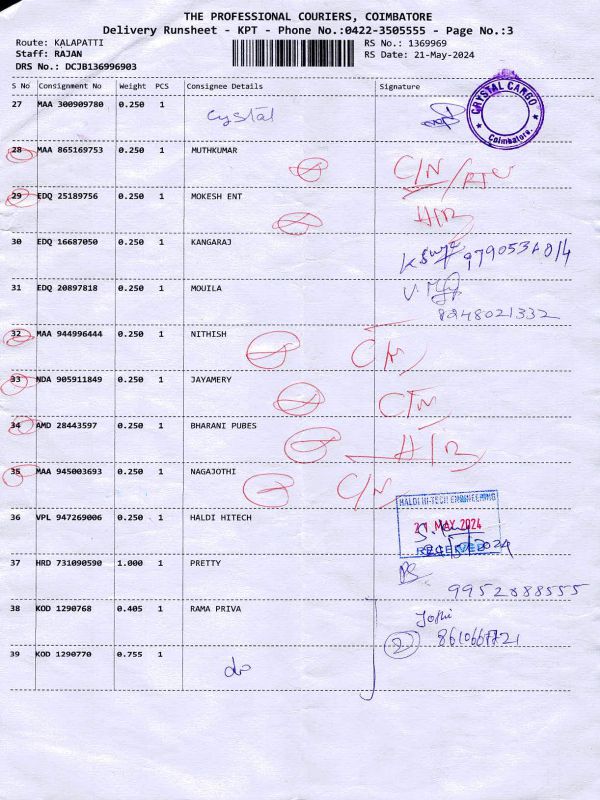 THE PROFESSIONAL COURIERS, COIMBATORE
Delivery Runsheet - KPT - Phone No.:0422-3505555 - Page No.:3
Route: KALAPATTI
RS No.: 1369969
Staff: RAJAN
RS Date: 21-May-2024
DRS No.: DCJB136996903
S No Consignment No Weight PCS Consignee Details Signature
27 MAA 300909780 0.250 1 Crystal
CRYSTAL CARGO
Coimbatore.
28 MAA 865169753 0.250 1 MUTHKUMAR
C/N/RTC
29 EDQ 25189756 0.250 1 MOKESH ENT
H/B
30 EDQ 16687050 0.250 1 KANGARAJ
31 EDQ 20897818 0.250 1 MOUILA
8248021332
32 MAA 944996444 0.250 1 NITHISH
33 NDA 905911849 0.250 1 JAYAMERY
34 AMD 28443597 0.250 1 BHARANI PUBES
H/B
35 MAA 945003693 0.250 1 NAGAJOTHI
C/N
36 VPL 947269006 0.250 1 HALDI HITECH
HALDI HI-TECH ENGINEERING
21 MAY 2024
RECEIVED
37 HRD 731090590 1.000 1 PRETTY
9952888555
38 KOD 1290768 0.405 1 RAMA PRIVA
2
39 KOD 1290770 0.755 1 do